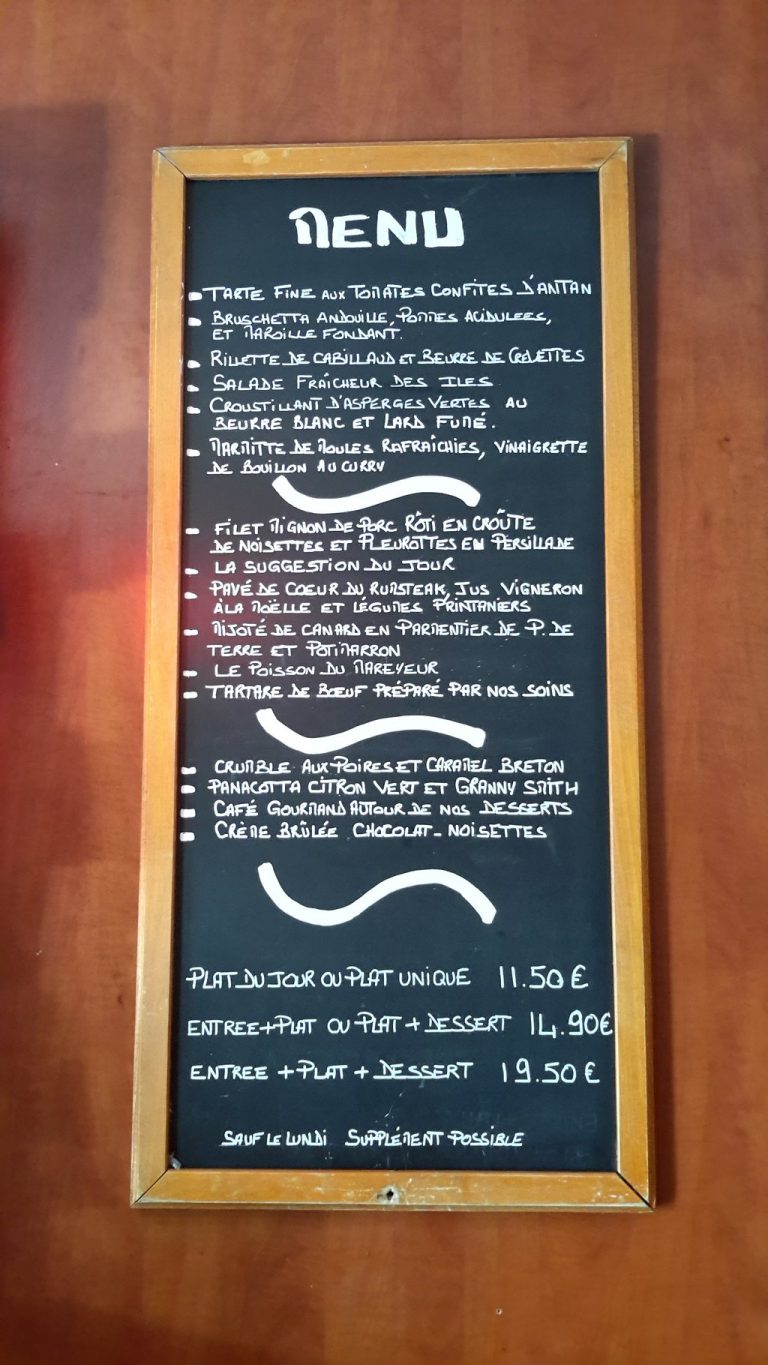 MENU
- TARTE FINE AUX TOMATES CONFITES D'ANTAN
- BRUSCHETTA ANDOUILLE, POMMES ACIDULEES,
ET MAROILLE FONDANT.
- RILLETTE DE CABILLAUD ET BEURRE DE CREVETTES
- SALADE FRAÎCHEUR DES ILES
- CROUSTILLANT D'ASPERGES VERTES AU
BEURRE BLANC ET LARD FUMÉ.
- MARMITTE DE MOULES RAFRAICHIES, VINAIGRETTE
DE BOUILLON AU CURRY
- FILET MIGNON DE PORC RÔTI EN CROÛTE
DE NOISETTES ET PLEUROTTES EN PERSILLADE
- LA SUGGESTION DU JOUR
- PAVÉ DE COEUR DU RUMSTEAK, JUS VIGNERON
À LA MOËLLE ET LÉGUMES PRINTANIERS
- MIJOTÉ DE CANARD EN PARMENTIER DE P. DE
TERRE ET POTIMARRON
- LE POISSON DU MAREYEUR
- TARTARE DE BŒUF PRÉPARÉ PAR NOS SOINS
- CRUMBLE AUX POIRES ET CARAMEL BRETON
- PANACOTTA CITRON VERT ET GRANNY SMITH
- CAFÉ GOURMAND AUTOUR DE NOS DESSERTS
- CRÈME BRÛLÉE CHOCOLAT-NOISETTES
PLAT DU JOUR OU PLAT UNIQUE 11.50€
ENTREE+PLAT OU PLAT+DESSERT 14.90€
ENTREE +PLAT+DESSERT 19.50€
SAUF LE LUNDI SUPPLÉMENT POSSIBLE